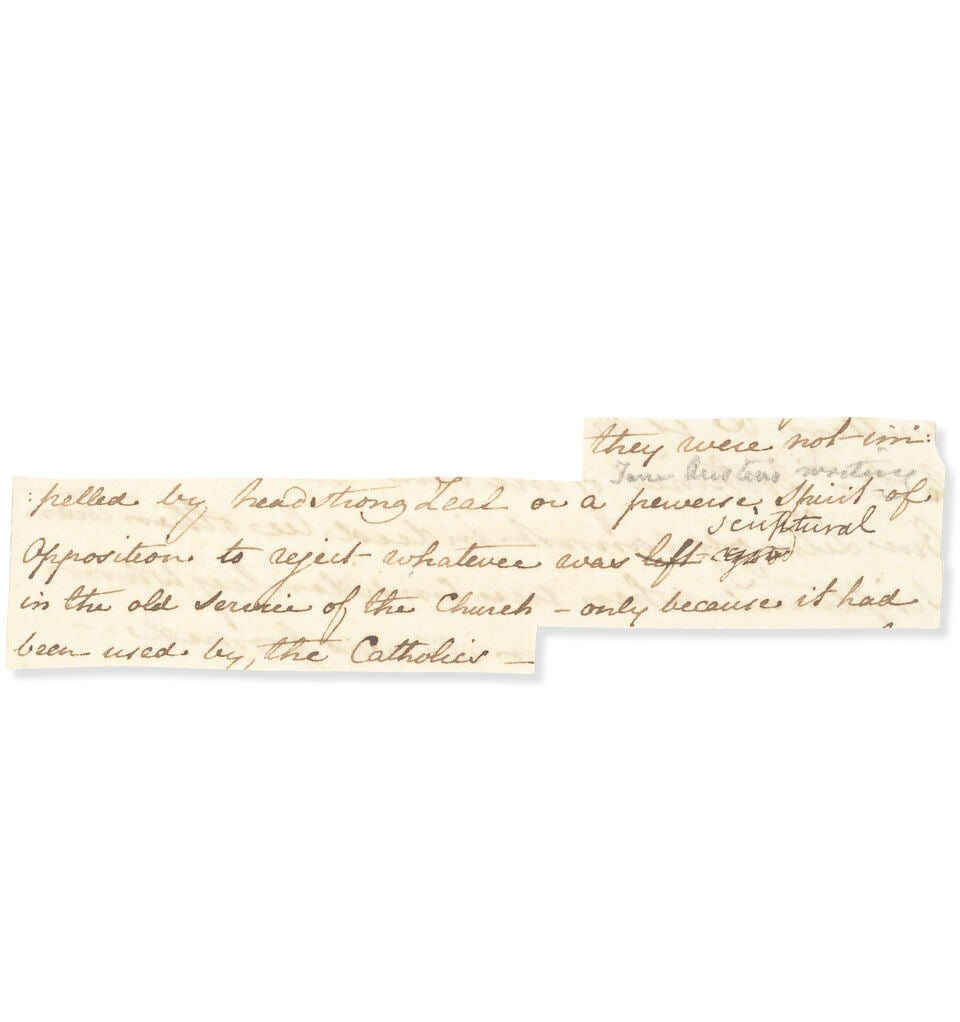 they were not im:
Jane Austen's writing
:pelled by headstrong Zeal or a perverse Spirit of
scriptural
Opposition to reject whatever was left
in the old Service of the Church – only because it had
been used by, the Catholics –